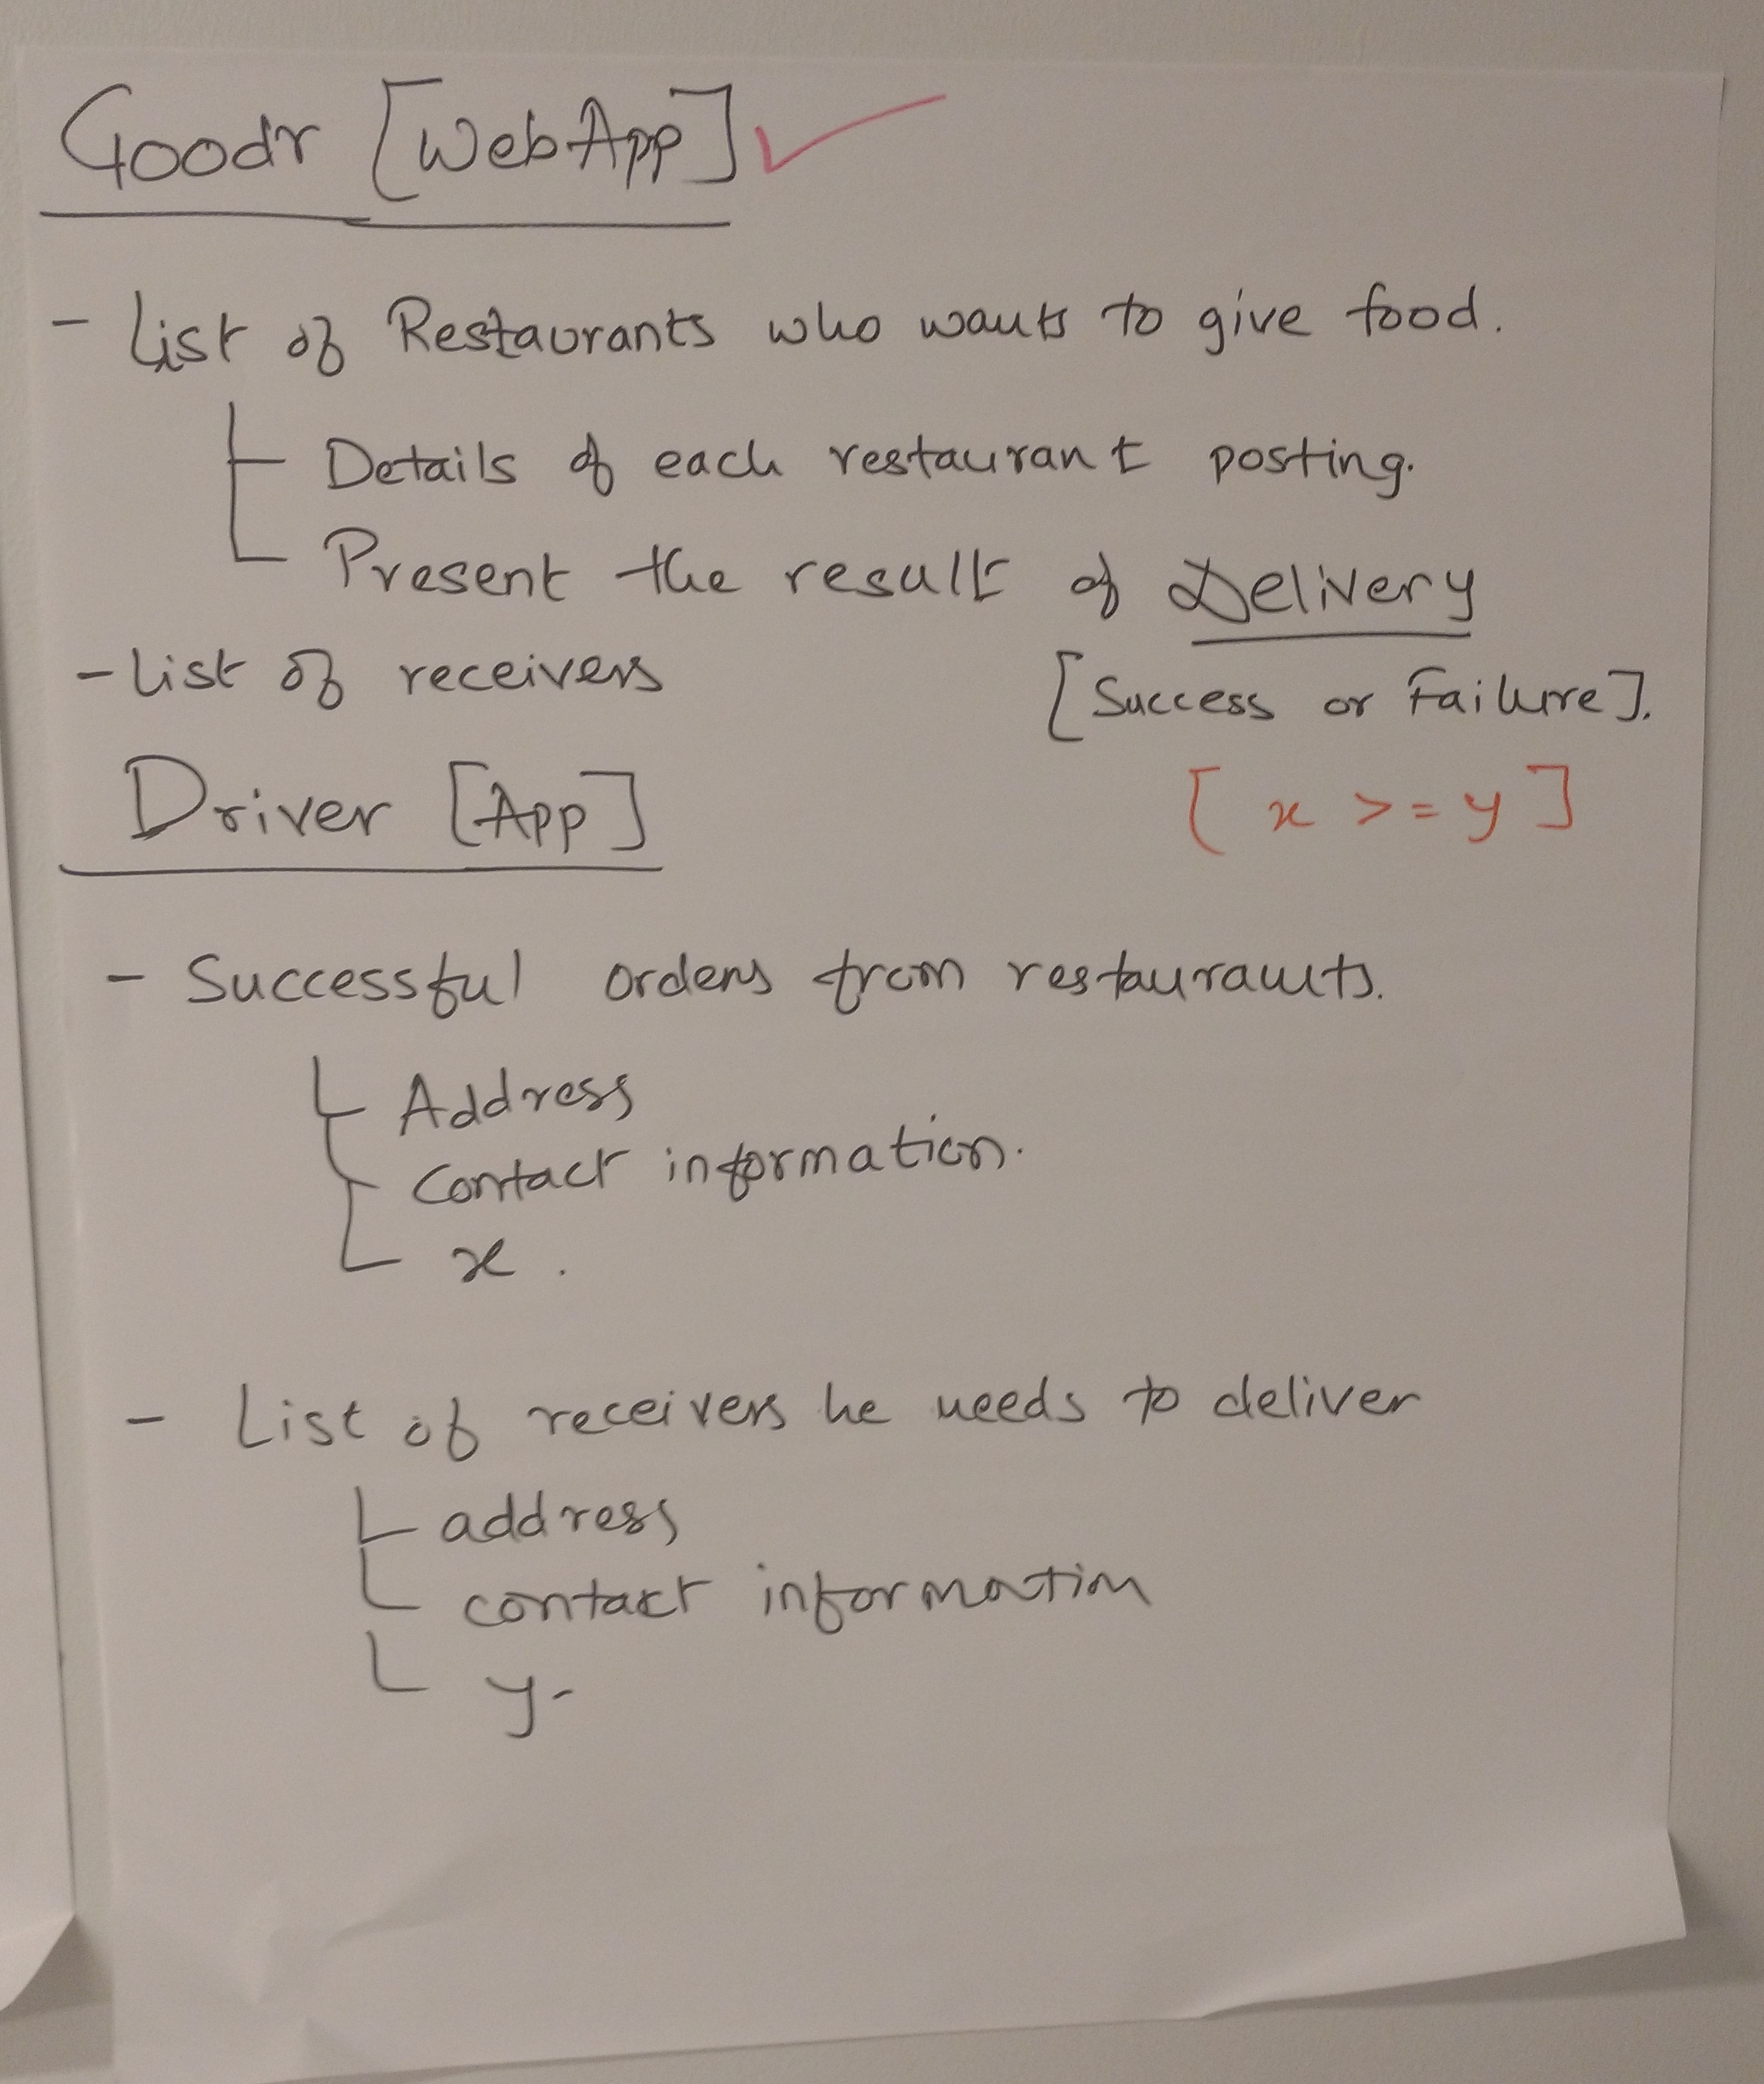 Goodr [WebApp] ✓
- List of Restaurants who wants to give food.
Details of each restaurant posting.
Present the result of Delivery
- List of receivers
[Success or Failure].
[x >= y]
Driver [App]
- Successful orders from restaurants.
Address
Contact information.
x.
- List of receivers he needs to deliver
address
contact information
y-